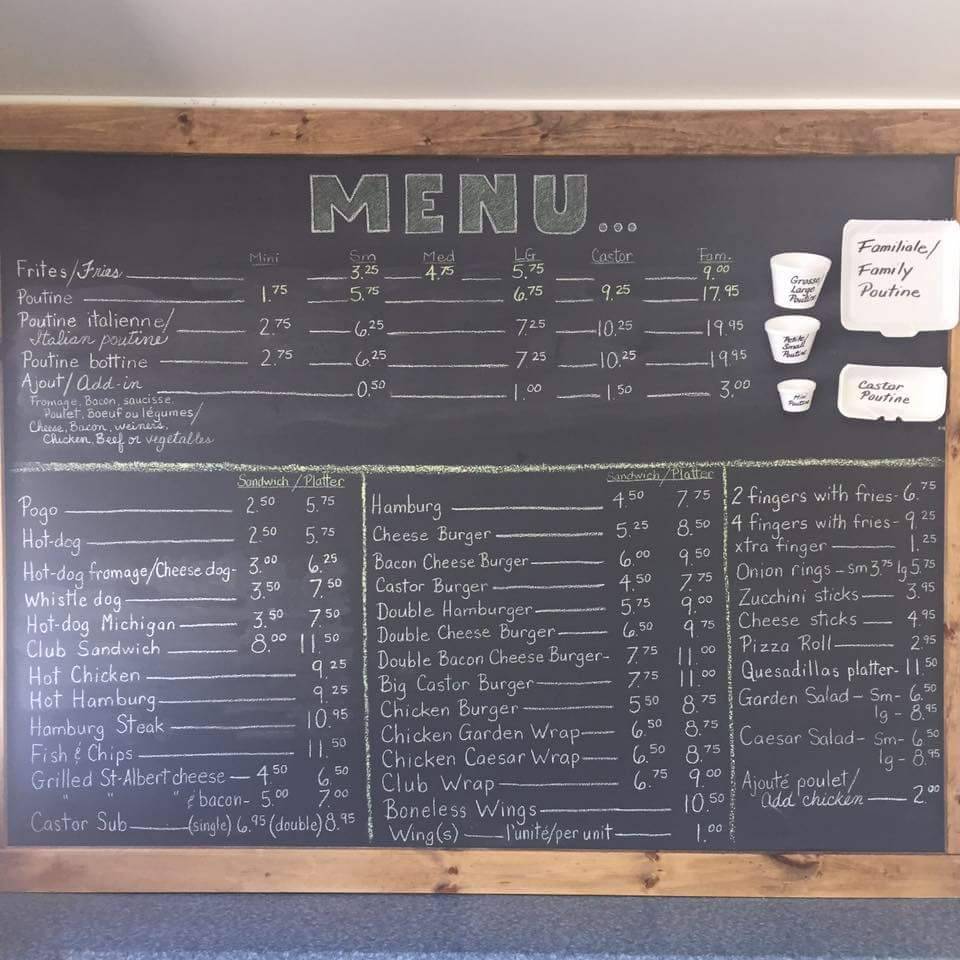 MENU...
Mini Sm Med LG Castor Fam.
Frites/Fries 3.25 4.75 5.75 9.00
Poutine 1.75 5.75 6.75 9.25 17.95
Poutine italienne/
Italian poutine 2.75 6.25 7.25 10.25 19.95
Poutine bottine 2.75 6.25 7.25 10.25 19.95
Ajout/Add-in 0.50 1.00 1.50 3.00
Fromage, Bacon, saucisse,
Poulet, Boeuf ou légumes/
Cheese, Bacon, weiners,
Chicken, Beef or vegetables
Grosse/
Large
Poutine
Petite/
Small
Poutine
Mini
Poutine
Familiale/
Family
Poutine
Castor
Poutine
Sandwich/Platter
Pogo 2.50 5.75
Hot-dog 2.50 5.75
Hot-dog fromage/Cheese dog- 3.00 6.25
Whistle dog 3.50 7.50
Hot-dog Michigan 3.50 7.50
Club Sandwich 8.00 11.50
Hot Chicken 9.25
Hot Hamburg 9.25
Hamburg Steak 10.95
Fish & Chips 11.50
Grilled St-Albert cheese — 4.50 6.50
" " " & bacon- 5.00 7.00
Castor Sub (single) 6.95 (double) 8.95
Sandwich/Platter
Hamburg 4.50 7.75
Cheese Burger 5.25 8.50
Bacon Cheese Burger 6.00 9.50
Castor Burger 4.50 7.75
Double Hamburger 5.75 9.00
Double Cheese Burger 6.50 9.75
Double Bacon Cheese Burger- 7.75 11.00
Big Castor Burger 7.75 11.00
Chicken Burger 5.50 8.75
Chicken Garden Wrap 6.50 8.75
Chicken Caesar Wrap 6.50 8.75
Club Wrap 6.75 9.00
Boneless Wings 10.50
Wing(s) — l'unité/per unit 1.00
2 fingers with fries- 6.75
4 fingers with fries- 9.25
xtra finger 1.25
Onion rings - sm 3.75 lg 5.75
Zucchini sticks 3.95
Cheese sticks 4.95
Pizza Roll 2.95
Quesadillas platter- 11.50
Garden Salad - Sm- 6.50
lg - 8.95
Caesar Salad- Sm- 6.50
lg - 8.95
Ajouté poulet/
add chicken 2.00